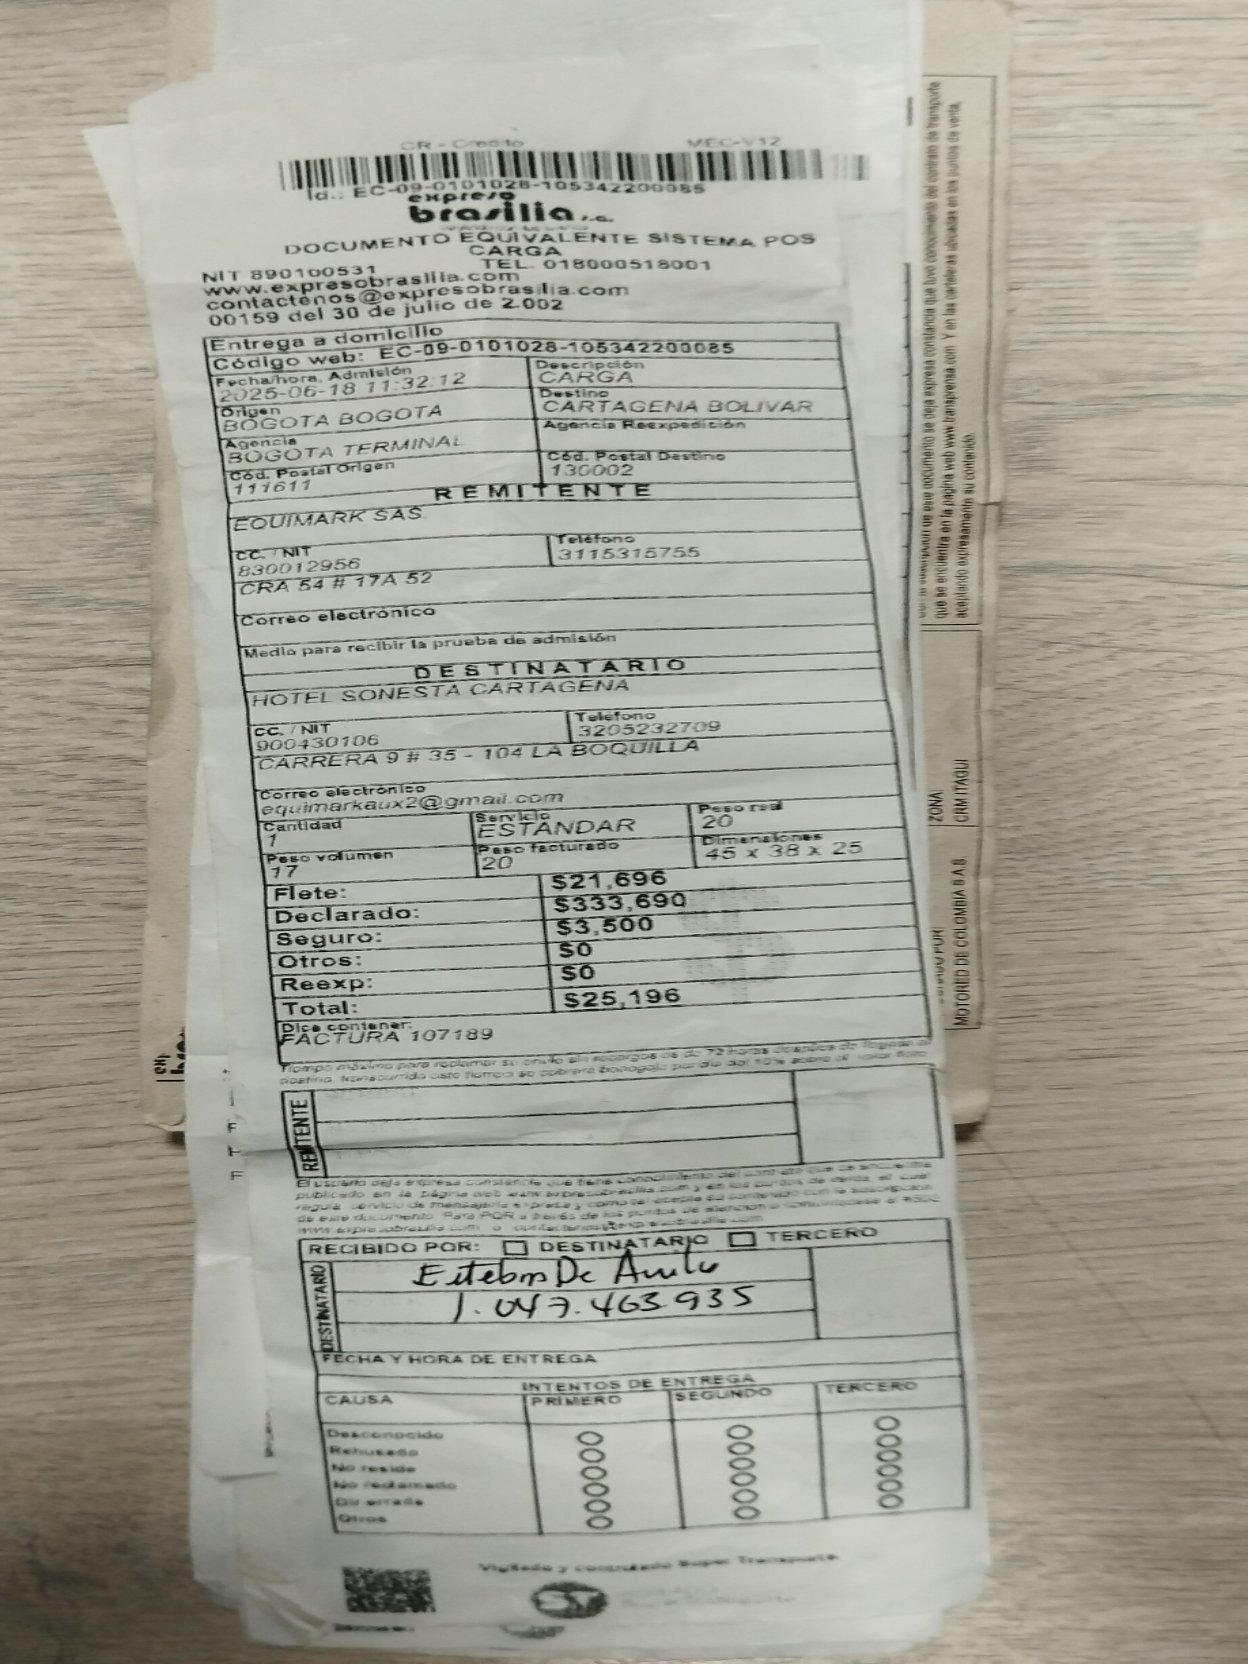 CR - Credito MEC-V12
Id.: EC-09-0101028-105342200085
expreso
brasilia s.a.
DOCUMENTO EQUIVALENTE SISTEMA POS
CARGA
NIT 890100531 TEL. 018000518001
www.expresobrasilia.com
contactenos@expresobrasilia.com
00159 del 30 de julio de 2.002
Entrega a domicilio
Código web: EC-09-0101028-105342200085
Fecha/hora. Admisión Descripción
2025-06-18 11:32:12 CARGA
Origen Destino
BOGOTA BOGOTA CARTAGENA BOLIVAR
Agencia Agencia Reexpedición
BOGOTA TERMINAL
Cód. Postal Origen Cód. Postal Destino
111611 130002
REMITENTE
EQUIMARK SAS
CC. / NIT Teléfono
830012956 3115315755
CRA 54 # 17A 52
Correo electrónico
Medio para recibir la prueba de admisión
DESTINATARIO
HOTEL SONESTA CARTAGENA
CC. / NIT Teléfono
900430106 3205232709
CARRERA 9 # 35 - 104 LA BOQUILLA
Correo electrónico
equimarkaux2@gmail.com
Cantidad Servicio Peso real
1 ESTANDAR 20
Peso volumen Peso facturado Dimensiones
17 20 45 x 38 x 25
Flete: $21,696
Declarado: $333,690
Seguro: $3,500
Otros: $0
Reexp: $0
Total: $25,196
Dice contener:
FACTURA 107189
Tiempo máximo para reclamar su envío sin recargos es de 72 horas después de llegado al
REMITENTE
El usuario deja expresa constancia que tiene conocimiento del contrato que se encuentra
publicado en la página web www.expresobrasilia.com y en los puntos de venta, el cual
regula servicio de mensajería expresa y como tal acepta su contenido con la suscripción
de este documento. Para PQR a través de los puntos de atención o
www.expresobrasilia.com o contactenos@expresobrasilia.com
RECIBIDO POR: DESTINATARIO TERCERO
DESTINATARIO
Esteban De Avila
1.047.463.935
FECHA Y HORA DE ENTREGA
INTENTOS DE ENTREGA
CAUSA PRIMERO SEGUNDO TERCERO
Desconocido
Rehusado
No reside
No reclamado
Dir errada
Otros
Vigilado y controlado Super Transporte
de este documento se deja expresa constancia que tuvo conocimiento del contrato de transporte
que se encuentra en la pagina web www.transprensa.com Y en las carteleras ubicadas en los puntos de venta,
aceptando expresamente su contenido.
ZONA
CRM ITAGUI
MOTORED DE COLOMBIA S.A.S.